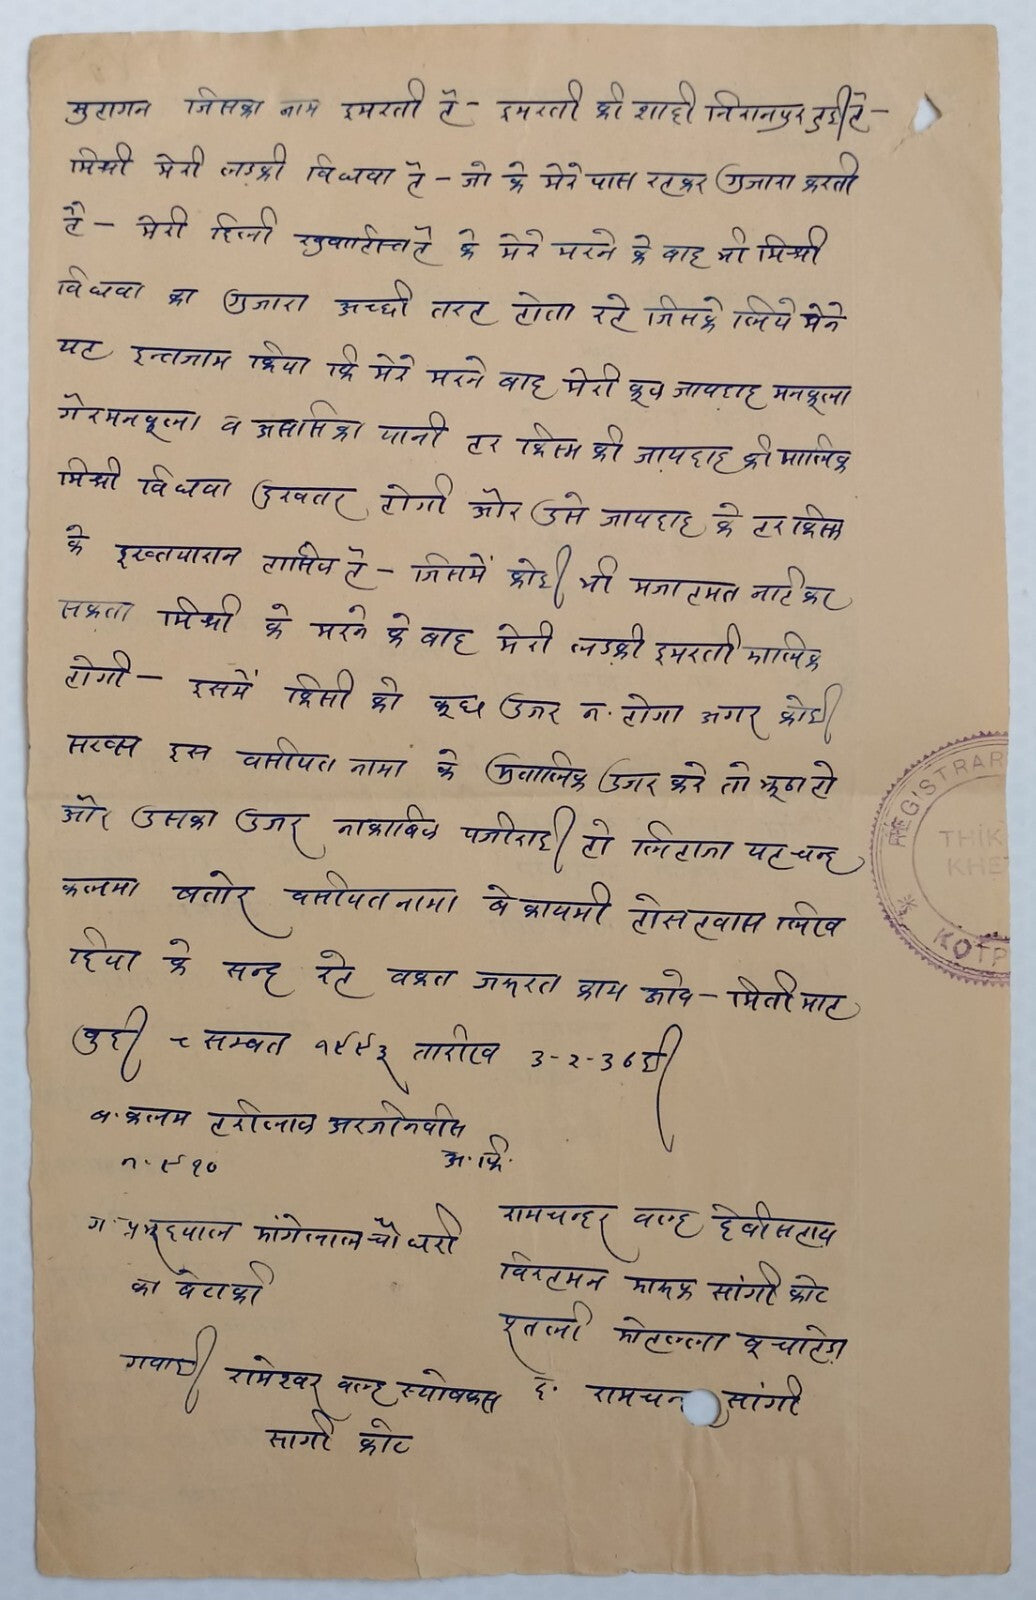 सुहागन जिसका नाम इमरती है - इमरती की शादी निरानपुर हुई है -
मिश्री मेरी लडकी विधवा है - जो के मेरे पास रहकर गुजारा करती
है - मेरी दिली ख्वाहिस है के मेरे मरने के बाद भी मिश्री
विधवा का गुजारा अच्छी तरह होता रहे जिसके लिये मेने
यह इन्तजाम किया कि मेरे मरने बाद मेरी कुल जायदाद मनकूला
गेरमनकूला व यानी हर किस्म की जायदाद की मालिक
मिश्री विधवा दुखतर होगी और उसे जायदाद के हर किस्म
के इख्तयारान हासिल है - जिसमें कोई भी मजाहमत नहि कर
सकता मिश्री के मरने के बाद मेरी लडकी इमरती मालिक
होगी - इसमें किसी को कुछ उजर न. होगा अगर कोई
सख्स इस वसीयत नामा के मुतालिक उजर करे तो झूठा हो
और उसका उजर नाकाबिल पजीराई हो लिहाजा यह चन्द
कलमा बतोर वसीयत नामा बे कायमी होस हवास लिख
दिया के सन्द रहे वक्त जरूरत काम आवे - मिती माह
बुदी ८ सम्वत १९९३ तारीख 3-2-36 ई
ब. कलम हरीलाल अरजीनवीस
न. ९१०
अ. कि.
ग. प्रभूदयाल मांगेलाल चौधरी
का बेटा की
गवाई रामेश्वर वल्द स्योबक्स
सांगी कोट
रामचन्दर वल्द देवीसहाय
विरहमन सांगी कोट
पुतली मोहल्ला बूचाहेडा
द. रामचन सांगी
REGISTRAR
THIK
KHE
KOTP